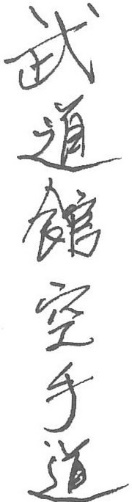 武道館空手道